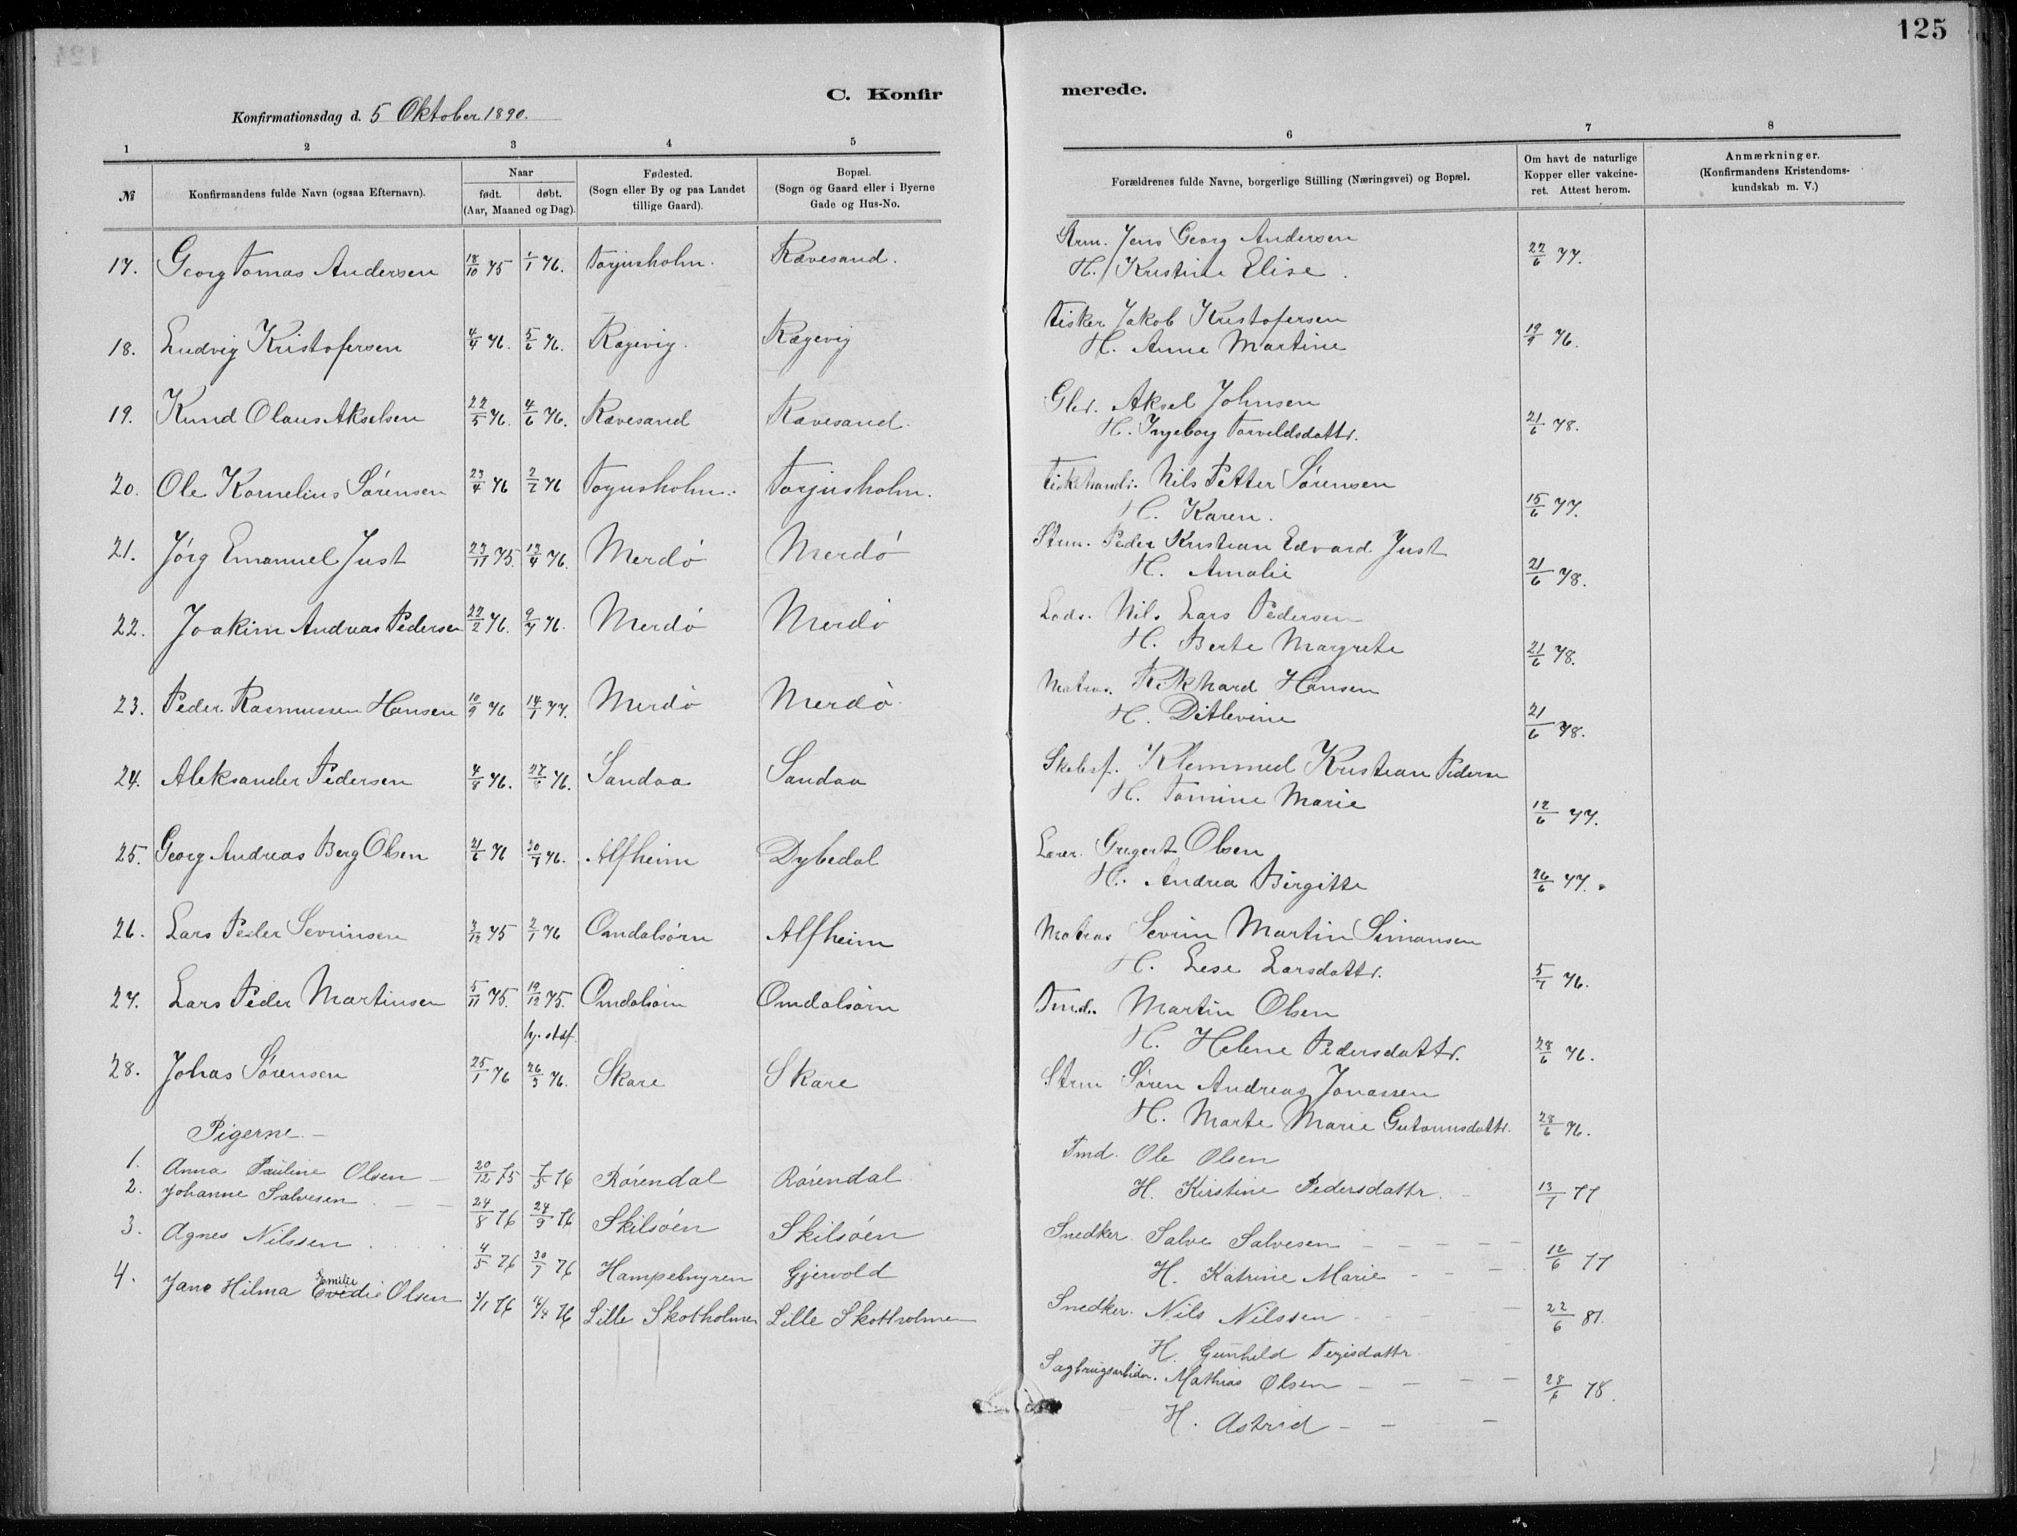 125
C. Konfirmerede.
Konfirmationsdag d. 5 Oktober 1890.
1 2 3 4 5 6 7 8
№
Konfirmandens fulde Navn (ogsaa Efternavn).
Naar
født. døbt.
(Aar, Maaned og Dag).
Fødested.
(Sogn eller By og paa Landet
tillige Gaard).
Bopæl.
(Sogn og Gaard eller i Byerne
Gade og Hus-No.
Forældrenes fulde Navne, borgerlige Stilling (Næringsvei) og Bopæl.
Om havt de naturlige
Kopper eller vakcine-
ret. Attest herom.
Anmærkninger.
(Konfirmandens Kristendoms-
kundskab m. V.)
17. Georg Tomas Andersen 18/10 75 1/1 76. Torjusholm. Rævesand. Strm. Jens Georg Andersen 22/6 77.
H. Kristine Elise.
18. Ludvig Kristofersen 4/4 76. 5/6 76. Rægevig. Rægevig Fisker Jakob Kristofersen 76.
H. Anne Martine
19. Knud Olaus Akselsen 22/5 76. 4/6 76. Rævesand Rævesand. Aksel Johnsen 21/6 78.
H. Ingeborg Torveldsdattr.
20. Ole Kornelius Sørensen 23/4 76 2/7 76 Torjusholm. Torjusholm. Fiskehandl. Nils Petter Sørensen 15/6 77.
H. Karen.
21. Jørg Emanuel Just 23/11 75. 76. Merdø Merdø Strm. Peder Kristian Edvard Just 21/6 78.
H. Amalie
22. Joakim Andreas Pedersen 22/2 76. 76. Merdø Merdø Lods. Nils Lars Pedersen 21/6 78.
H. Berte Margrete
23. Peder Rasmussen Hansen 10/9 76 14/1 77. Merdø Merdø. Matros. Rikhard Hansen 21/6 78.
H. Ditlevine
24. Aleksander Pedersen 4/8 76. 27/8 76. Sandaa Sandaa Klemmed Kristian Pedersen 12/6 77.
H. Tomine Marie
25. Georg Andreas Berg Olsen 21/6 76 76. Alfheim Dybedal Lærer. Gregert Olsen 26/6 77.
H. Andrea Birgitte
26. Lars Peder Sevrinsen 3/12 75 2/1 76 Omdalsørn Alfheim Matros Sevrin Martin Simonsen 5/7 76.
H. Lese Larsdattr.
27. Lars Peder Martinsen 5/11 75. 19/12 75. Omdalsørn Omdalsørn Tmd. Martin Olsen 28/6 76.
hj. stdf.
H. Helene Pedersdattr.
28. Johas Sørensen 25/1 76 26/3 76. Skare Skare Strm Søren Andreas Jonassen 28/6 76.
H. Marte Marie Gutormsdattr.
Pigerne. —
1. Anna Pauline Olsen — 20/12 75 76 Rørendal Rørendal. Tmd. Ole Olsen 13/7 77
H. Kirstine Pedersdattr.
2. Johanne Salvesen — — 24/8 76 24/9 76 Skilsøen Skilsøen Snedker. Salve Salvesen — — — — 12/6 77
H. Katrine Marie — — —
3. Agnes Nilssen 4/5 76 30/7 76 Hampemyren Gjervold Snedker. Nils Nilssen 22/6 81.
H. Gunhild Terjisdattr.
4. Jane Hilma Emilie Evedie Olsen 3/1 76 76 Lille Skotholmen Lille Skottholmen Sagbrugsarbider. Mathias Olsen — — — — 28/6 78.
H. Astrid — — —